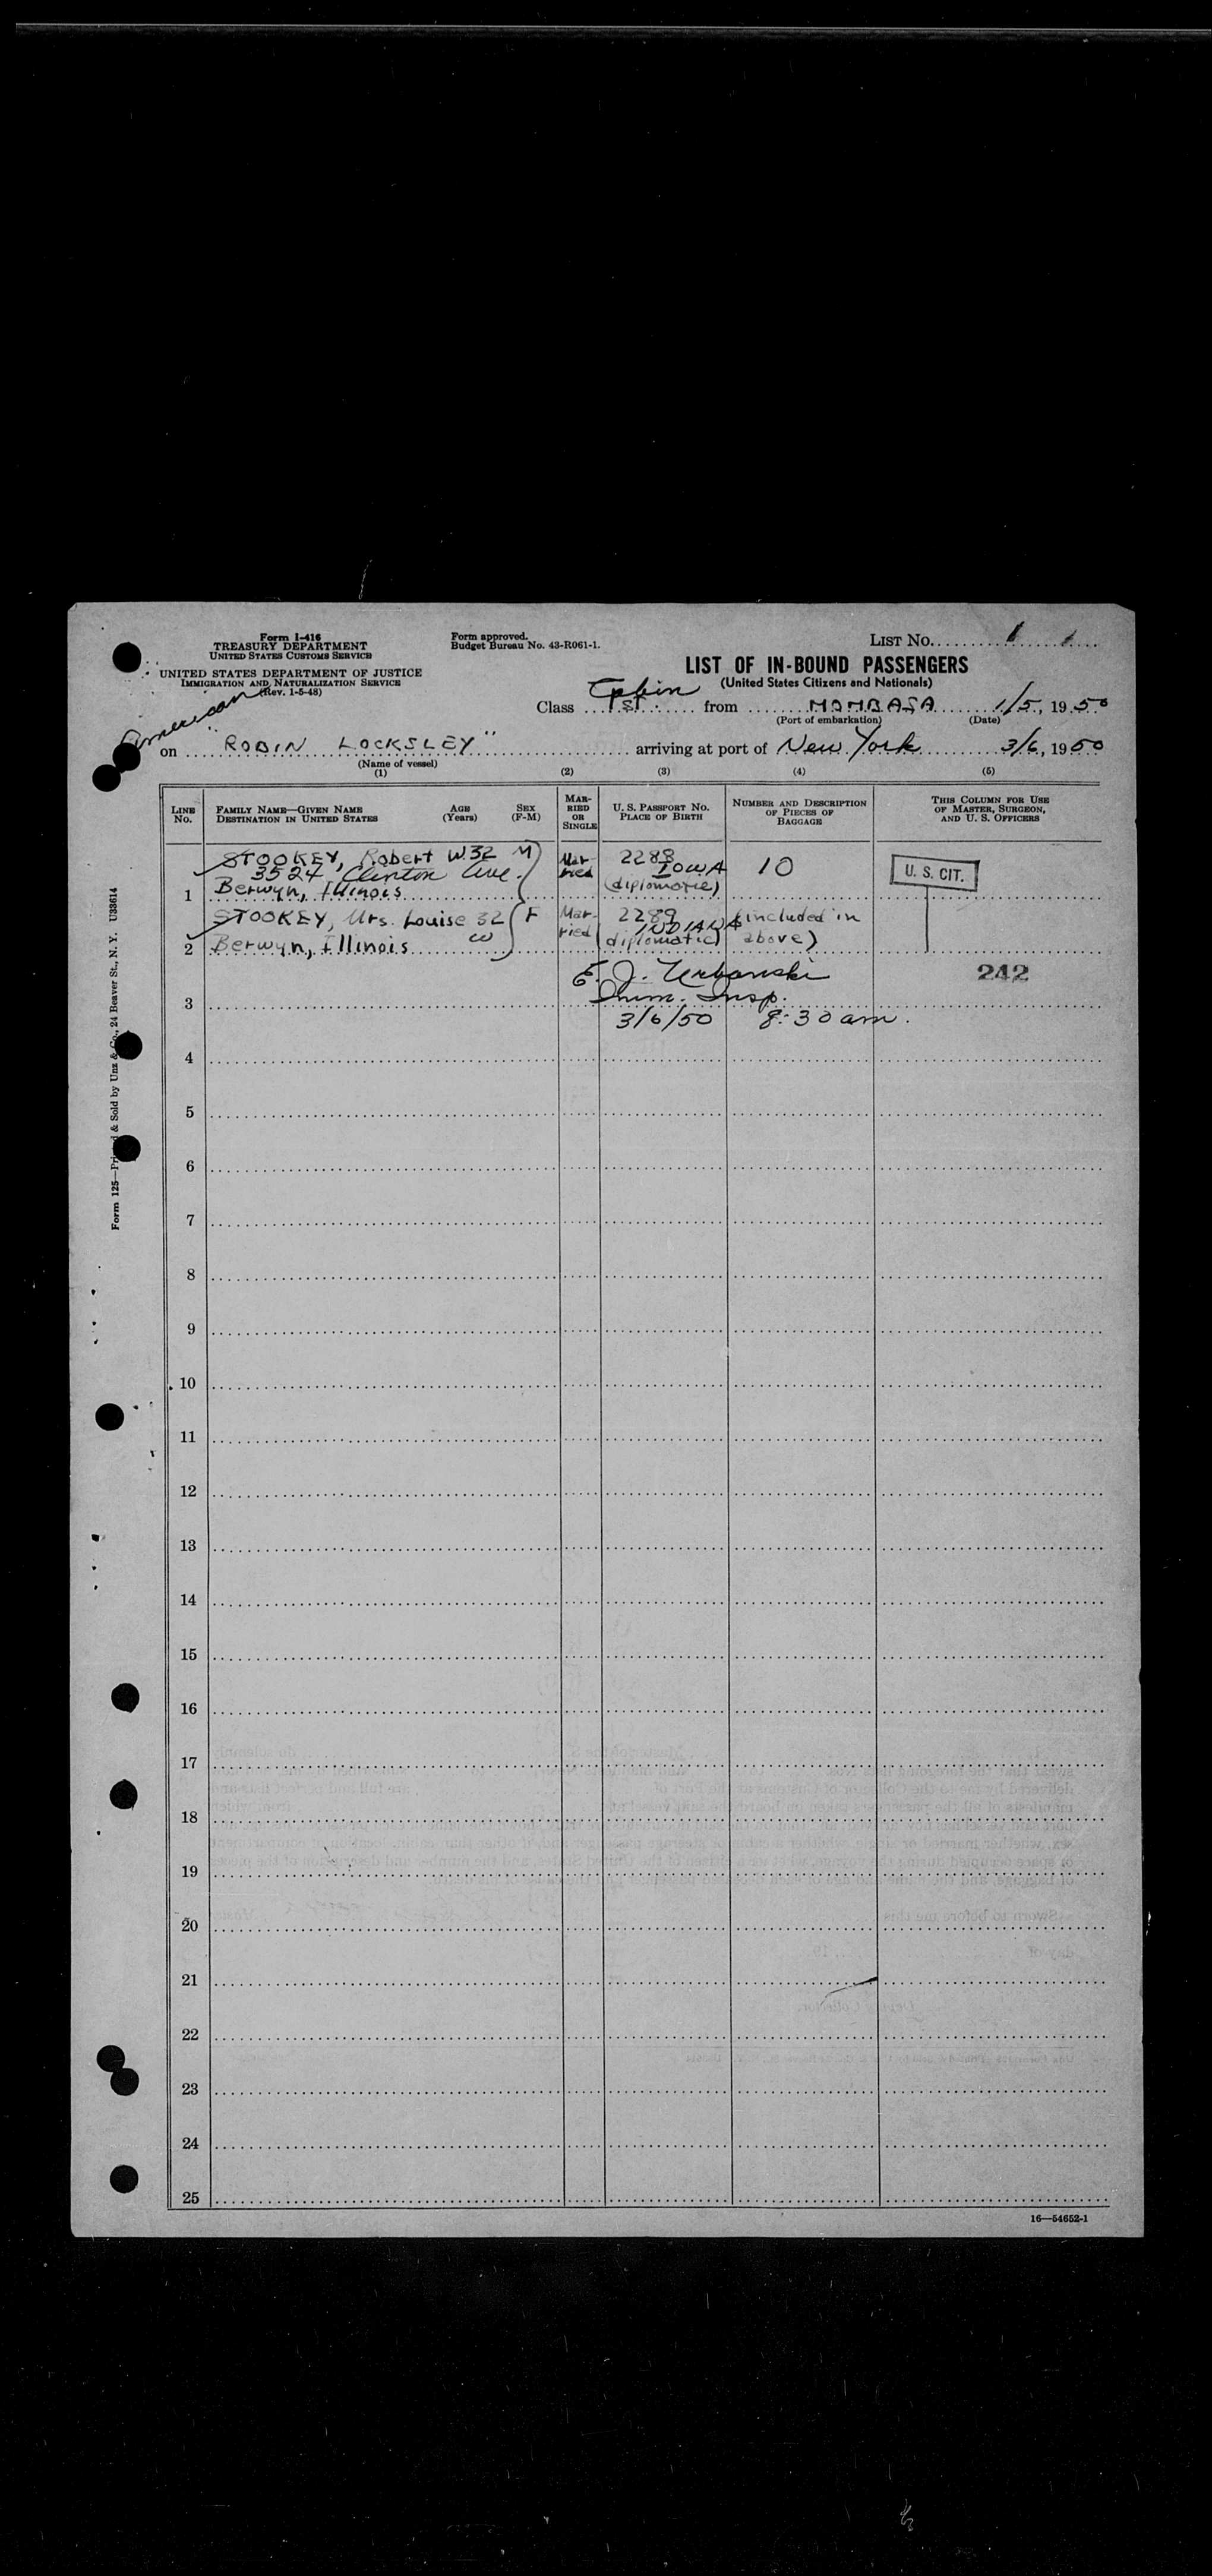 Form I-416
TREASURY DEPARTMENT
UNITED STATES CUSTOMS SERVICE
UNITED STATES DEPARTMENT OF JUSTICE
IMMIGRATION AND NATURALIZATION SERVICE
(Rev. 1-5-48)
Form approved.
Budget Bureau No. 43-R061-1.
LIST NO. 1 1
LIST OF IN-BOUND PASSENGERS
(United States Citizens and Nationals)
Cabin
Class 1st. from MOMBASA 1/5, 1950
(Port of embarkation) (Date)
American
on "ROBIN LOCKSLEY" arriving at port of New York 3/6, 1950
(Name of vessel)
(1) (2) (3) (4) (5)
LINE NO. FAMILY NAME—GIVEN NAME DESTINATION IN UNITED STATES AGE (Years) SEX (F-M) MARRIED OR SINGLE U. S. PASSPORT NO. PLACE OF BIRTH NUMBER AND DESCRIPTION OF PIECES OF BAGGAGE THIS COLUMN FOR USE OF MASTER, SURGEON, AND U. S. OFFICERS
STOOKEY, Robert W 32 M Mar- 2288 10 U. S. CIT.
3524 Clinton Ave. ried IOWA
1 Berwyn, Illinois (diplomatic)
STOOKEY, Mrs. Louise 32 F Mar- 2289 (included in
w ried INDIANA
2 Berwyn, Illinois (diplomatic) above)
E. J. Urbanski 242
3 Imm. Insp.
3/6/50 8:30 am.
4
5
6
7
8
9
10
11
12
13
14
15
16
17
18
19
20
21
22
23
24
25
16—54652-1
Form 125—Printed & Sold by Unz & Co., 24 Beaver St., N. Y. U33614